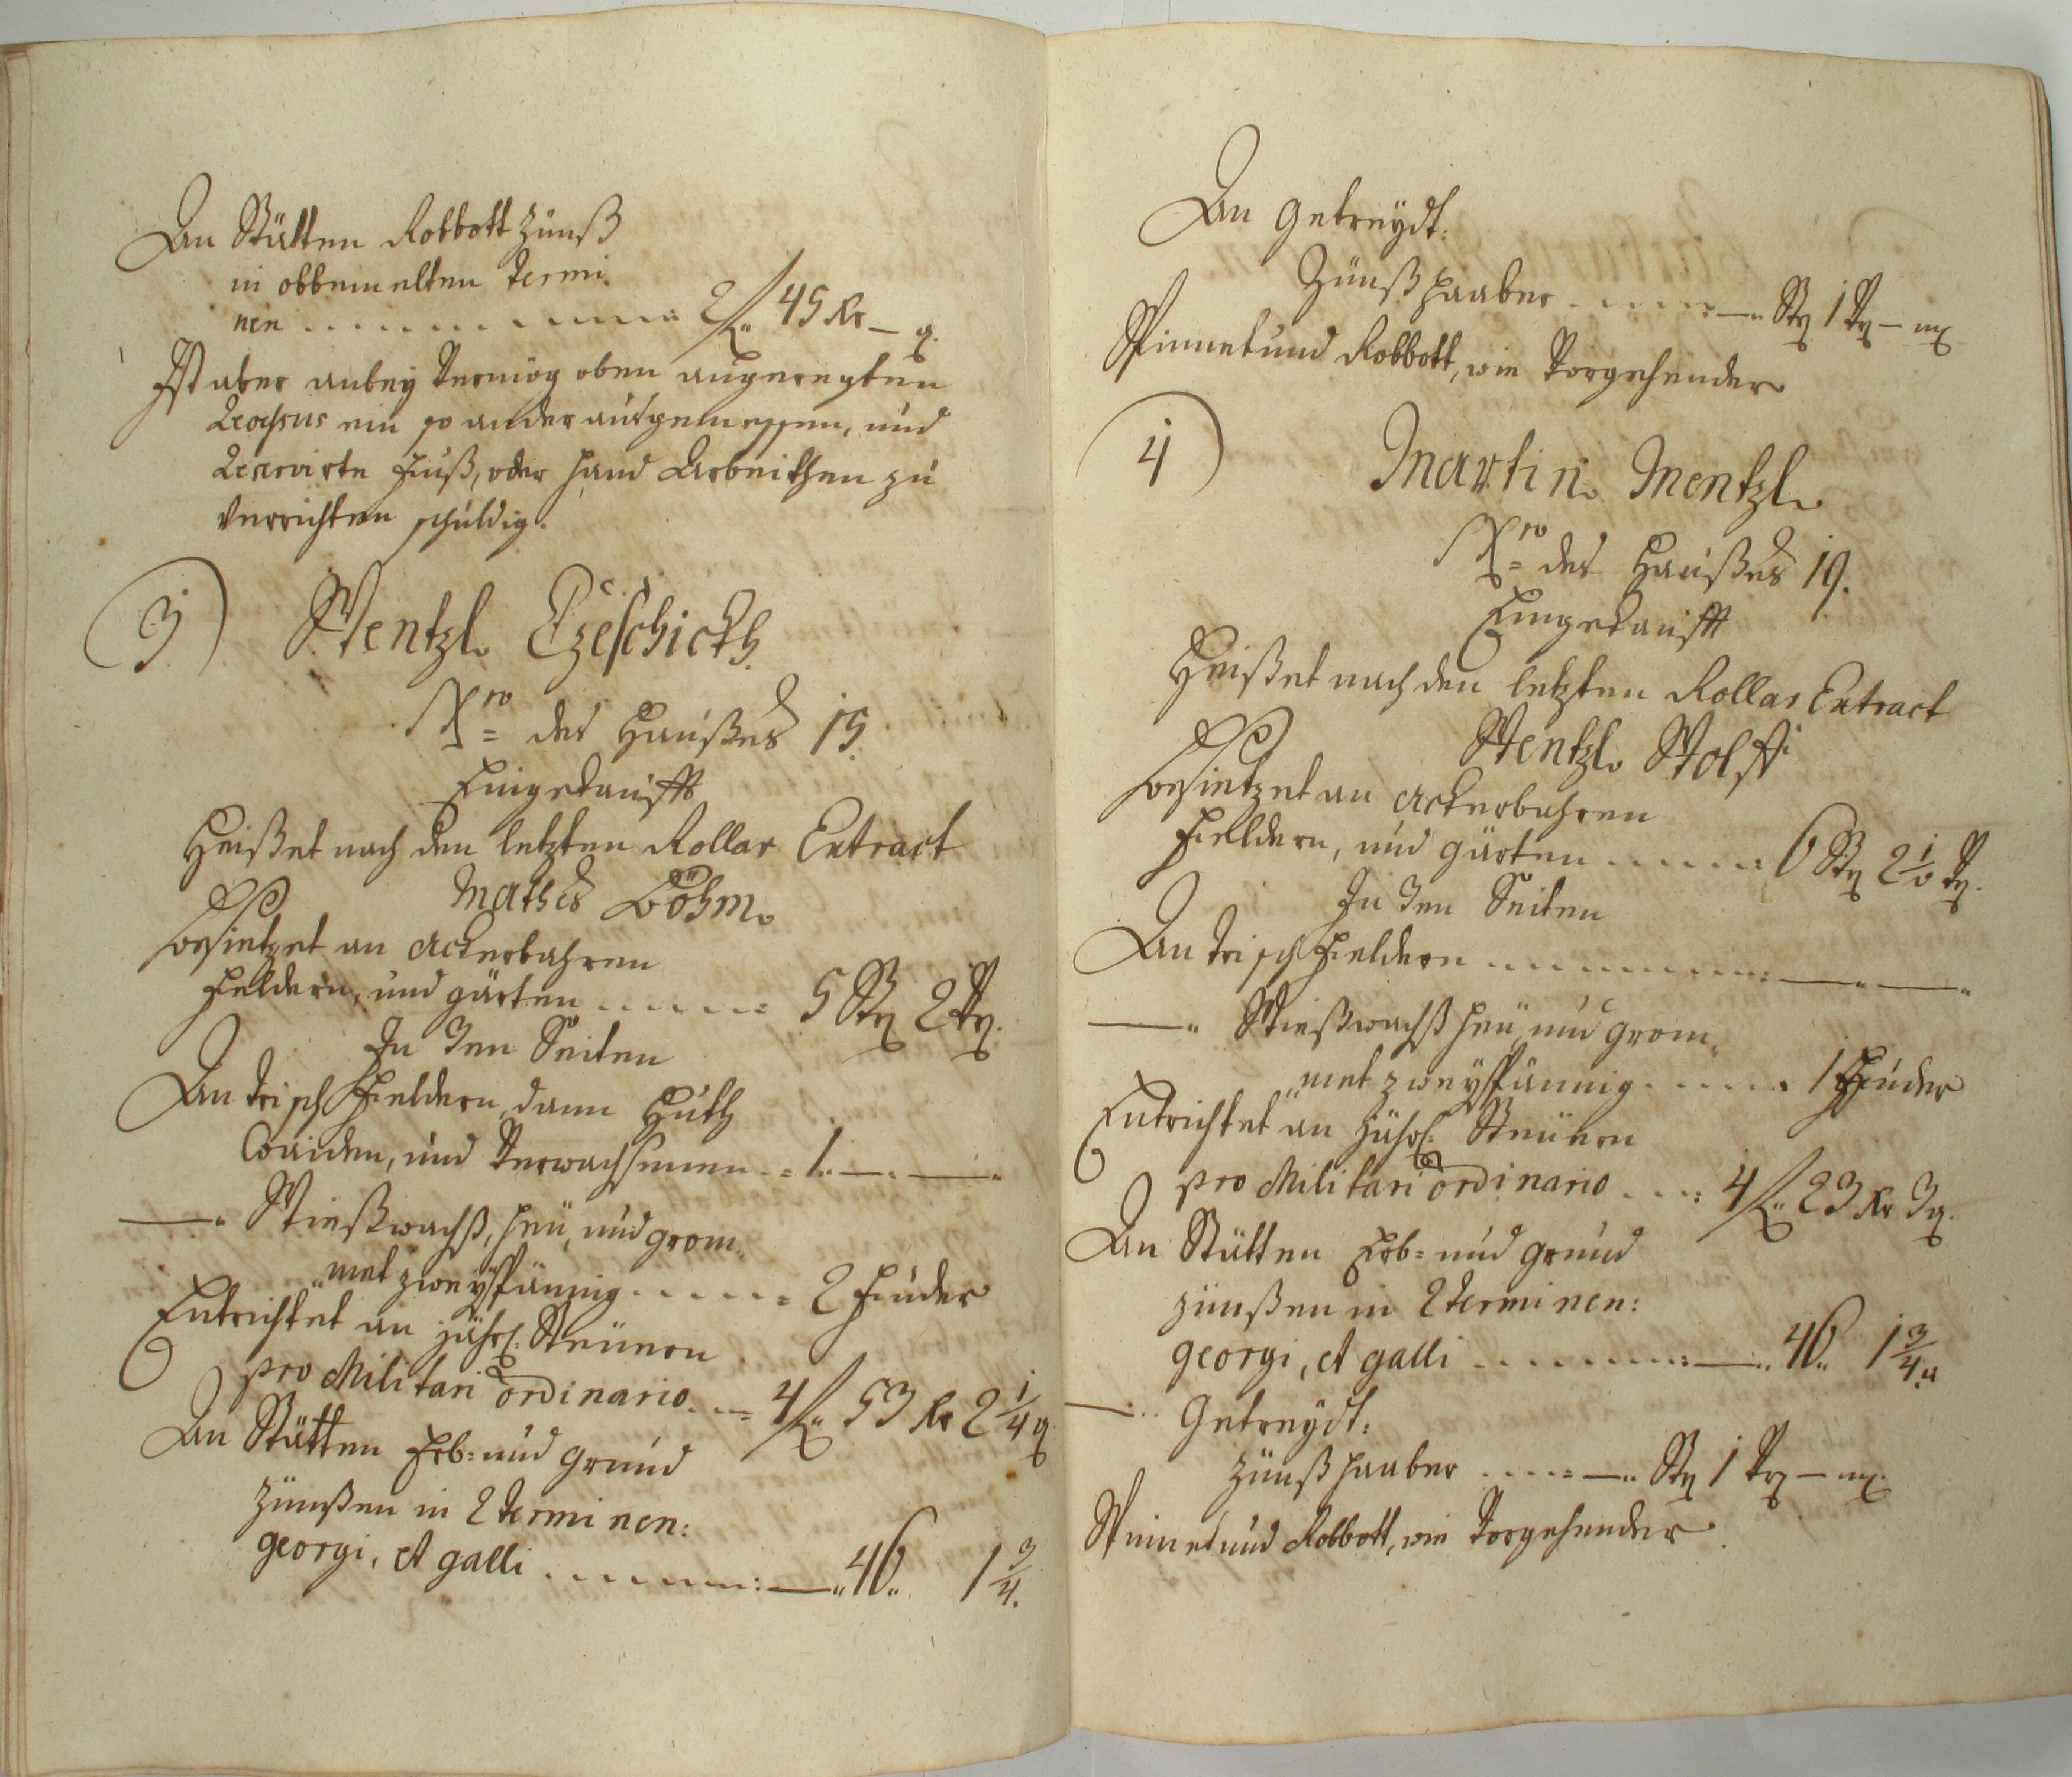 An Stätten Robbott Zünß
in obbemelten termi
nen ......... 2 f. 45 Kr – q.
Ist aber anbey Vermög oben angeregten
ein so ander ausgemessen, und
Reservirte Fuß, oder Hand Arbeithen zu
Verrichten schuldig.
3) Wentzl. Czeschickh.
Nro= des Haußes 15.
Eingekaufft
Heißet nach den letzten Rollar Extract
Mathes Böhm.
Besietzet an Ackerbahren
Feldern, und gärten ..... = 5 Str 2 Vrt.
In Ven Seiten
An trisch Fieldern, dann Huth
Waiden, und Verwachsenen ..= 1. —. —.
—. Wießwachß, heü, und grom„
„met zweyspännig ...... = 2 Fuder
Entrichtet an Jährl. Steüern
pro Militari ordinario. ..= 4 f. 53 Kr 2 1/4 q.
An Stätten Erb= und grund
Zünßen in 2 terminen:
georgi, et galli ........: —„ 46„ 1 3/4.
An getreydt:
Zünß haaber .......—„ Str 1 Vrt – mx
Spinnet und Robbott, wie Vorgehender
4) Martin. Mentzl.
Nro= des Haußes 19.
Eingekaufft
Heißet nach den letzten Rollar Extract
Wentzl. Wolff
Besietzet an Ackerbahren
Fieldern, und gärten ......: 6 Str 2 1/2 Vrt.
In Ven Seiten
An trisch Fieldern ..........: —„ —„
—„ Wießwachß heü, und grom„
„met zweyspännig ...... 1 Fuder
Entrichtet an Jährl: Steüern
pro Militari ordinario ....: 4 f. 23 Kr 3 q.
An Stätten Erb= und grund
zünßen in 2 terminen:
georgi, et galli .........: —„ 46„ 1 3/4„
—„ Getreydt:
Zünß haaber .....= —„ Str 1 Vrt – mx.
Spinnet und Robbott, wie Vorgehender.